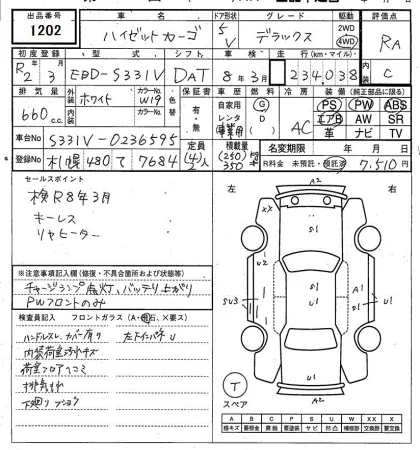 出品番号 車名 ドア形状 グレード 駆動 評価点
1202 ハイゼットカーゴ 5 V デラックス 2WD 4WD RA
初度登録 型式 シフト 車検 走行(km・マイル) C
R2 3 EBD-S331V DAT 8年3月 234,038
排気量 外装 カラーNo. 色替 保証書 自家用 燃料 冷房 装備(純正部品に限る)
660cc ホワイト W19 有・無 レンタ G D AC PS PW ABS
内装 カラーNo. 事業用 エアB AW SR
革 ナビ TV
車台No S331V-0236595 定員 積載量 名変期限 年 月 日
登録No 札幌480て7684 (4)2人 (250)350kg R料金 未預託・預託済 7,510円
セールスポイント
検R8年3月
キーレス
リヤヒーター
左 右
※注意事項記入欄(修復・不具合箇所および状態等)
チャージランプ点灯、バッテリ上がり
PWフロントのみ
検査員記入 フロントガラス(A・飛石、X要ス)
ハンドルスレ、カバー有り 左下インパネU
内装荷室汚れキズ
荷室フロアヘコミ
下廻り
A2
XX
S1
S1
U2
S1
SU3
A1
U1
U1
A2
T
スペア
A B C P S U W X XX
線キズ 要板金 腐蝕 要塗装 サビ 凹凸 補修跡 要交換 交換